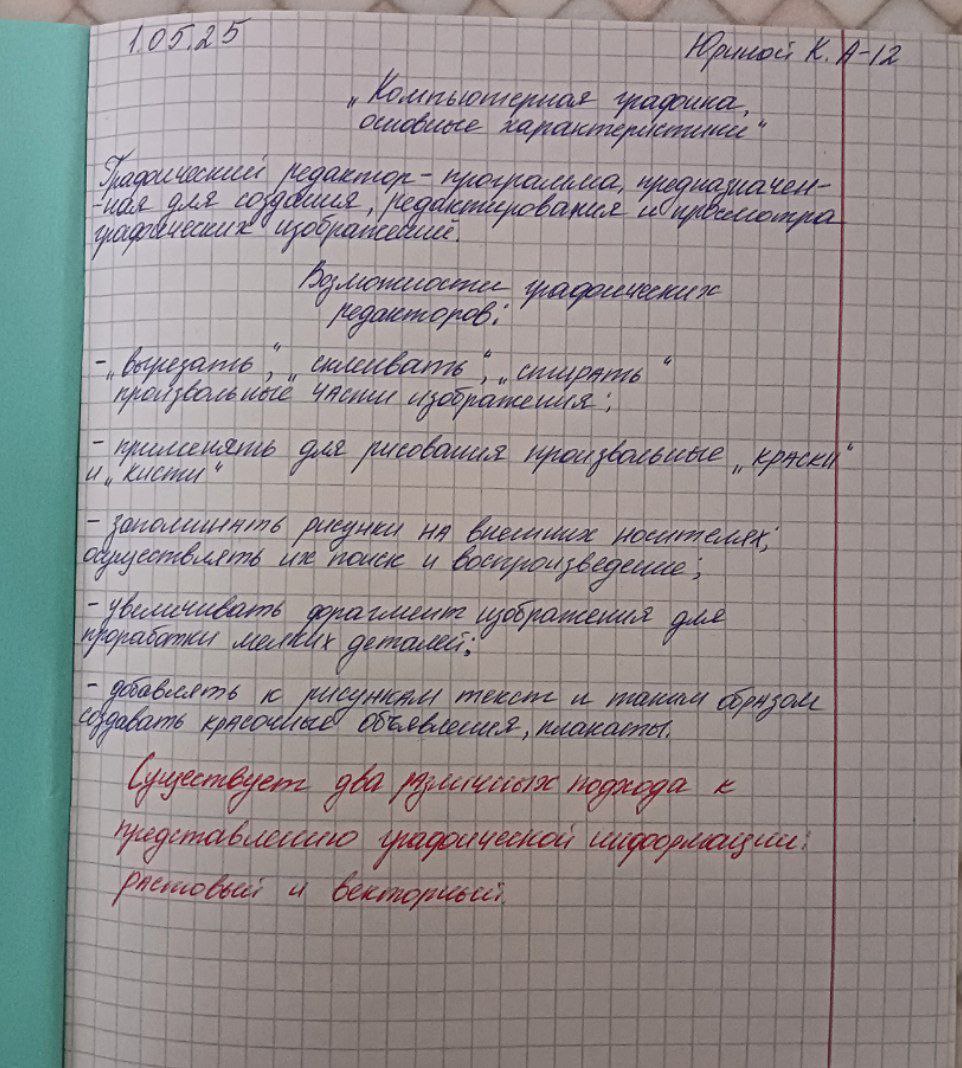 1.05.25
Юриной К. А-12
„Компьютерная графика,
основные характеристики“
Графический редактор - программа, предназначен-
-ная для создания, редактирования и просмотра
графических изображений.
Возможности графических
редакторов:
- „вырезать“, „склеивать“, „стирать“
произвольные части изображения;
- применять для рисования произвольные „краски“
и „кисти“
- запоминать рисунки на внешних носителях;
осуществлять их поиск и воспроизведение;
- увеличивать фрагмент изображения для
проработки мелких деталей;
- добавлять к рисункам текст и таким образом
создавать красочные объявления, плакаты.
Существует два различных подхода к
представлению графической информации:
растовый и векторный.